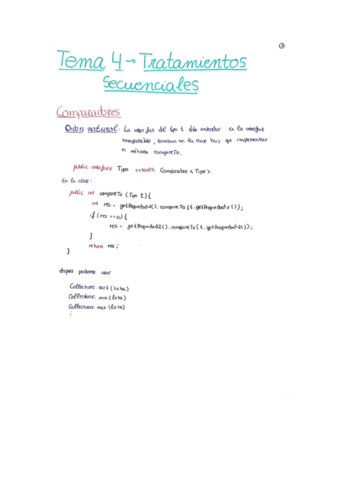 Tema 4 → Tratamientos
Secuenciales
Comparadores
Orden natural: La interfaz del tipo t debe extender a la interfaz
comparable, tambien en la clase hay que implementar
el método compareTo.
public interface Tipo extends Comparable < Tipo >
En la clase:
public int compareTo (Tipo t) {
int res = getPropiedad1().compareTo(t.getPropiedad1());
if (res == 0) {
res = getPropiedad2().compareTo(t.getPropiedad2());
}
return res;
}
después podemos usar
Collections.sort(lista)
Collections.min(lista)
Collections.max(lista)